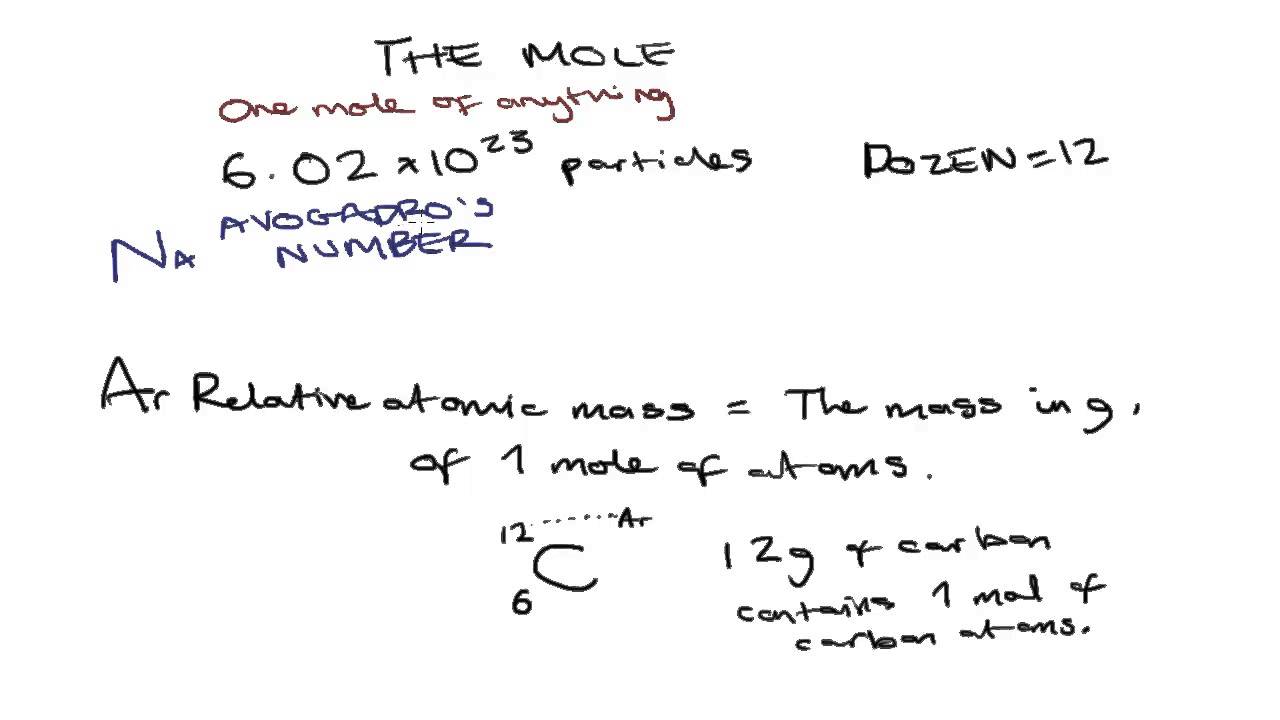 THE MOLE
One mole of anything
6.02 × 10²³ particles
DOZEN = 12
AVOGADRO'S
NA NUMBER
Ar Relative atomic mass = The mass in g,
of 1 mole of atoms.
12 ...... Ar
C
6
12g of carbon
contains 1 mol of
carbon atoms.